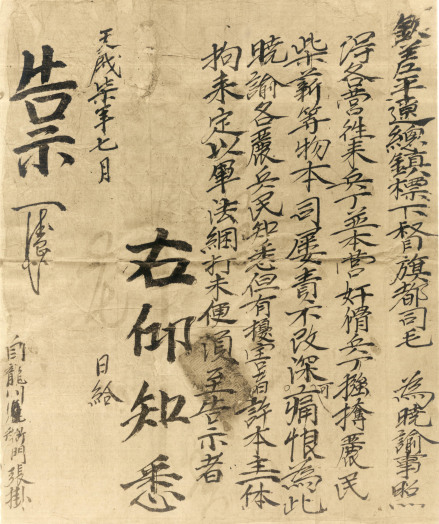 欽差平遼總鎮標下督旗都司毛 為曉諭事照
得各營徃來兵丁並本營奸猾兵丁搶擄農民
柴薪等物本司屢責不改深可痛恨為此
曉諭各農兵民知悉但有擾害者許本主一体
拘来定以軍法綑打未便湏至告示者
右仰知悉
天啟柒年七月 日給
告示
自龍川 衙門張掛